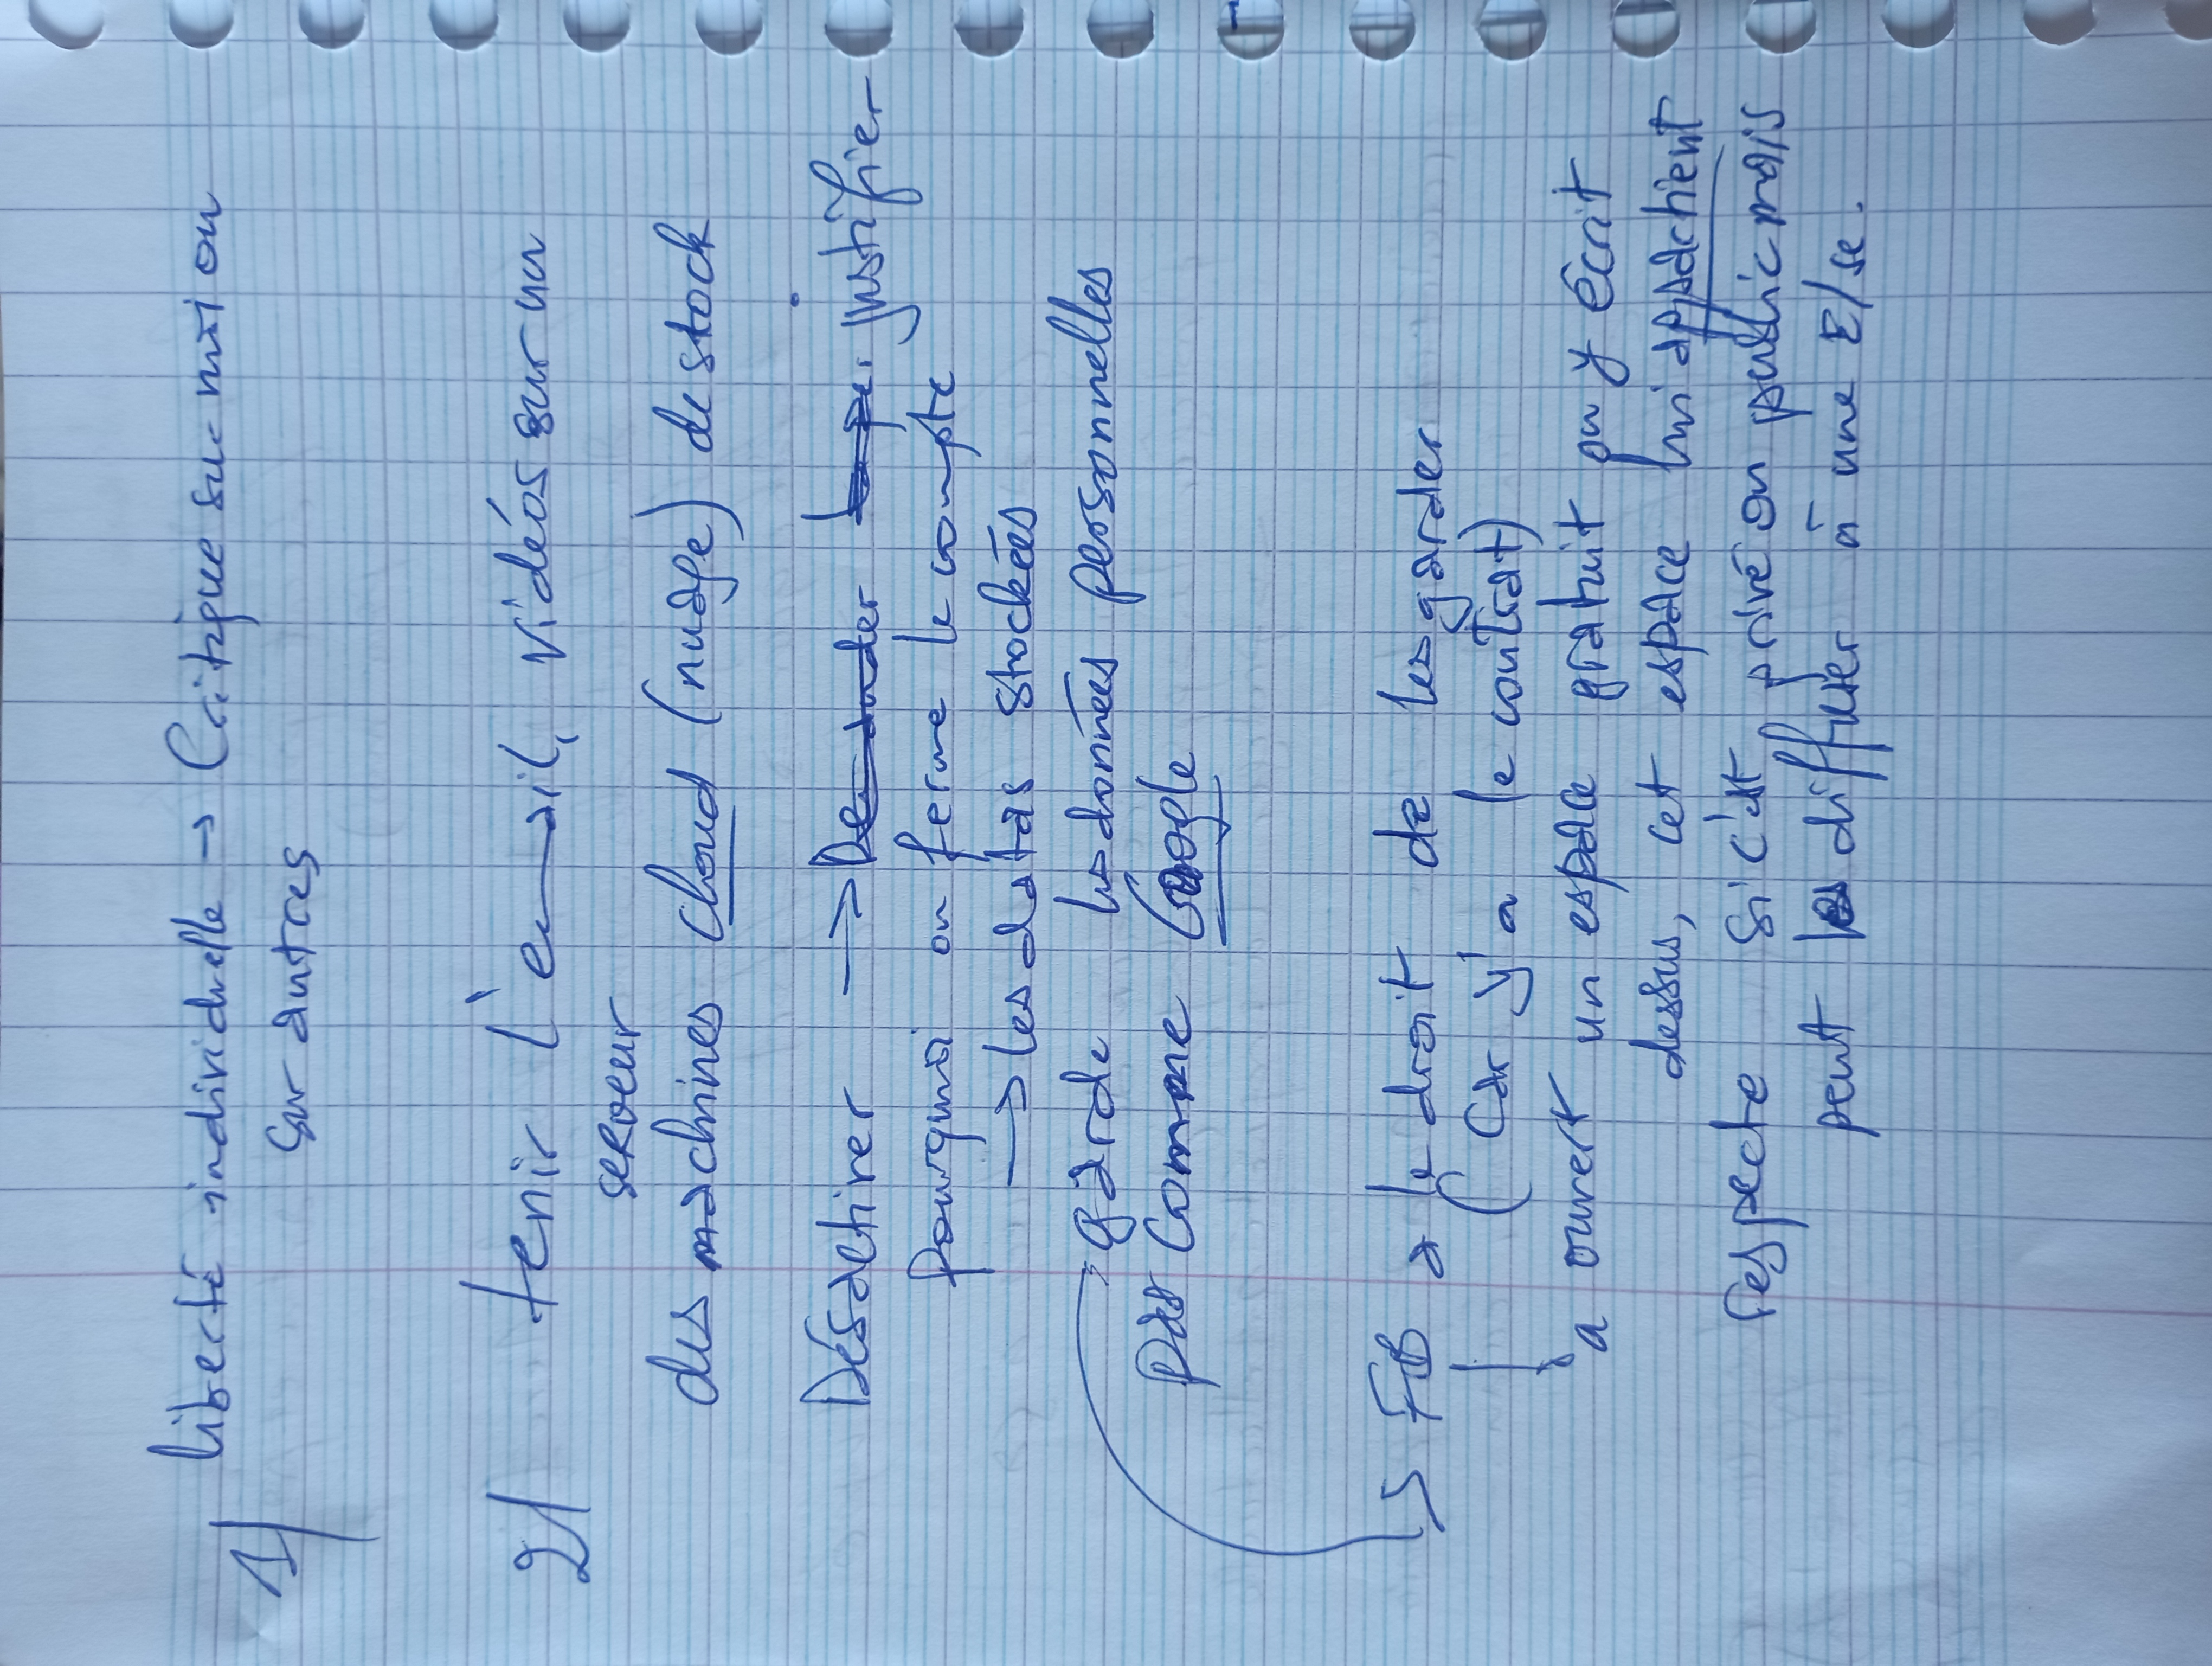 1/ liberté individuelle → Critique sur moi ou
sur autres
2/ tenir l'email, vidéos sur un
serveur
des machines cloud (nuage) de stock
Désactiver → Demander justifier
pourquoi on ferme le compte
→ les datas stockées
garde les données personnelles
pas comme Google
→ FB a le droit de les garder
(car y'a le contrat)
a ouvert un espace gratuit on y écrit
dessus, cet espace lui appartient
respecte si c'est privé ou public mais
peut les diffuser à une E/se.